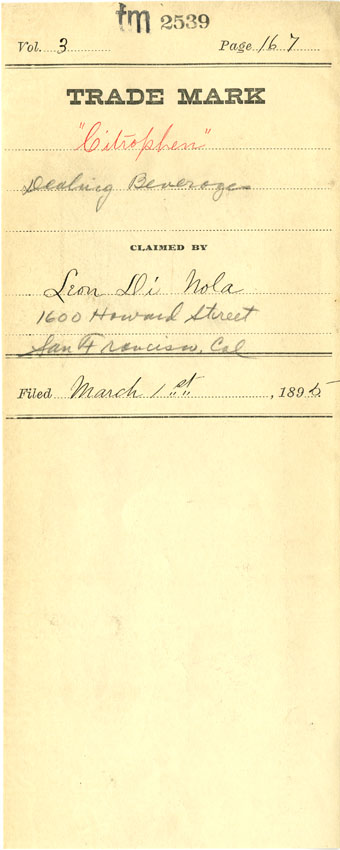 tm 2539
Vol. 3 Page 167
TRADE MARK
"Citrophen"
Healing Beverage
CLAIMED BY
Leon Di Nola
1600 Howard Street
San Francisco, Cal
Filed March 1st, 1895